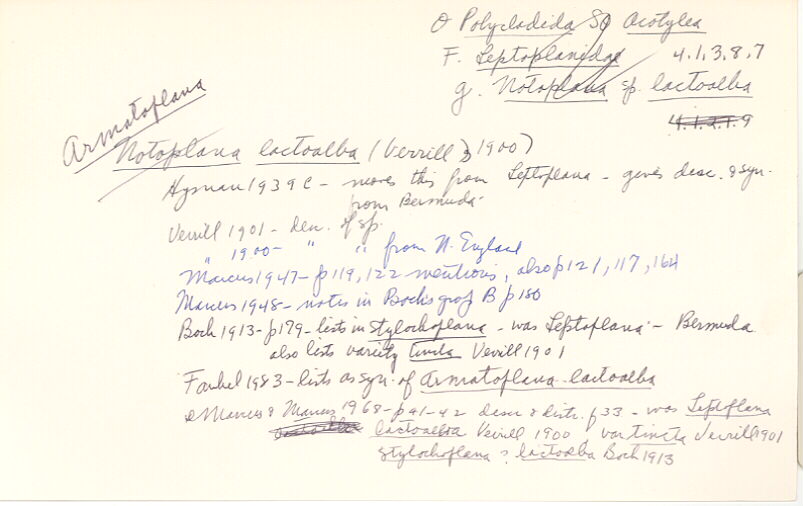 O Polycladida SO Acotylea
F. Leptoplanidae 4.1.3.8.7
g. Notoplana sp. lactoalba
4.1.2.1.9
Armatoplana
Notoplana lactoalba (Verrill, 1900)
Hyman 1939C - moves this from Leptoplana - gives desc. & syn.
from Bermuda
Verrill 1901 - den. of sp.
" 1900 - " " from N. England
Marcus 1947 - p119, 122 mentions, also p121, 117, 164
Marcus 1948 - notes in Bock's grop B p180
Bock 1913 - p179 - lists in Stylochoplana - was Leptoplana - Bermuda
also lists variety tincta Verrill 1901
Faubel 1983 - lists as syn. of Armatoplana lactoalba
Marcus & Marcus 1968 - p41-42 desc & distr. f33 - was Leptoplana
lactoalba Verrill 1900, var tincta Verrill 1901
Stylochoplana lactoalba Bock 1913